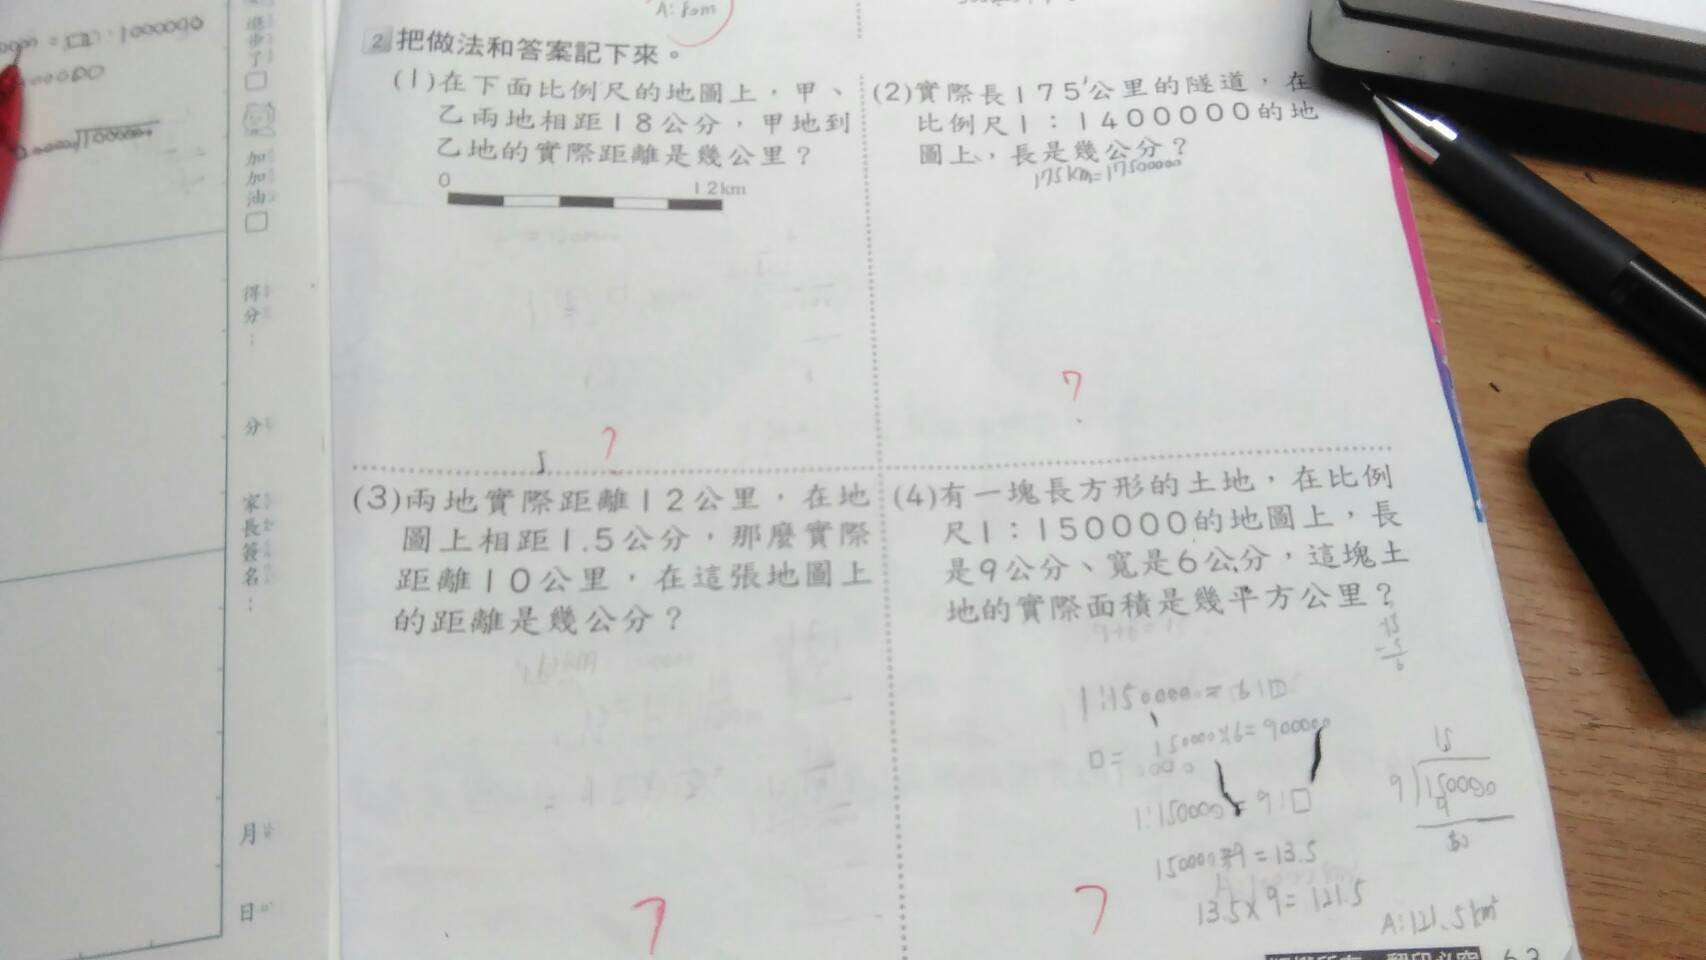 A: 80m
2 把做法和答案記下來。
(1)在下面比例尺的地圖上，甲、
乙兩地相距18公分，甲地到
乙地的實際距離是幾公里？
0 12km
(2)實際長175公里的隧道，在
比例尺1：1400000的地
圖上，長是幾公分？
175km=17500000
?
?
(3)兩地實際距離12公里，在地
圖上相距1.5公分，那麼實際
距離10公里，在這張地圖上
的距離是幾公分？
?
(4)有一塊長方形的土地，在比例
尺1：150000的地圖上，長
是9公分、寬是6公分，這塊土
地的實際面積是幾平方公里？
1:150000=6:□
□=150000×6=900000
1:150000=9:□
150000×9=13.5
13.5×9=121.5
A:121.5km²
15
9
150000
9
?
步
了
加
加
油
得
分
：
分
家
長
簽
名
：
月
日
63